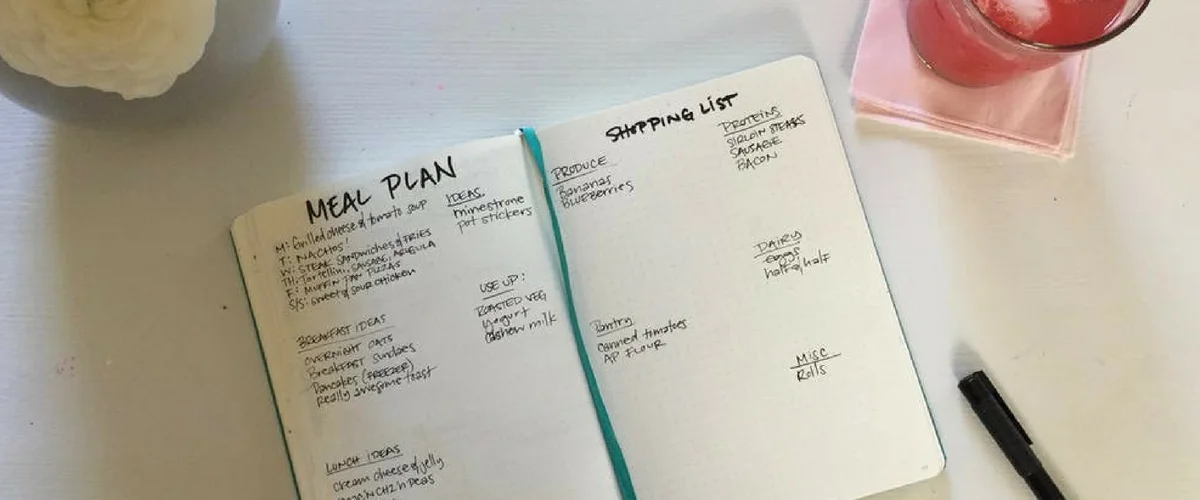 MEAL PLAN
M: Grilled cheese & tomato soup
T: NACHOS!
W: STEAK SANDWICHES & FRIES
TH: Tortellini, SAUSAGE, ARUGULA
F: MUFFIN PAN PIZZAS
S/S: Sweet & SOUR CHICKEN
IDEAS
minestrone
pot stickers
USE UP:
ROASTED VEG
yogurt
cashew milk
BREAKFAST IDEAS
OVERNIGHT OATS
Breakfast Sundaes
Pancakes (FREEZER)
Really awesome toast
LUNCH IDEAS
cream cheese & jelly
CHZ 'n Peas
SHOPPING LIST
PRODUCE
Bananas
BLUEBERRIES
PROTEINS
SIRLOIN STEAKS
SAUSAGE
BACON
DAIRY
eggs
half & half
Pantry
canned tomatoes
AP FLOUR
MISC
Rolls